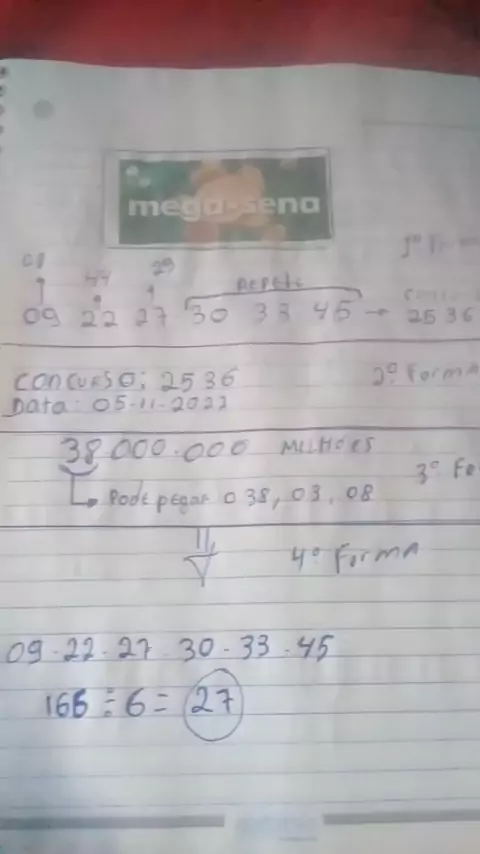 mega-sena
1º Forma
08 44 29 REPETE
09 22 27 30 33 45 → 2536
CONCURSO: 2536
2º Forma
Data: 05-11-2022
38.000.000 MILHÕES
3º Fo
Pode pegar o 38, 03, 08
4º Forma
09.22.27.30.33.45
166 ÷ 6 = 27